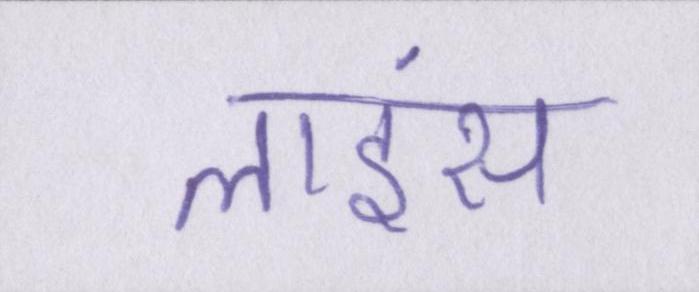 लाइंस